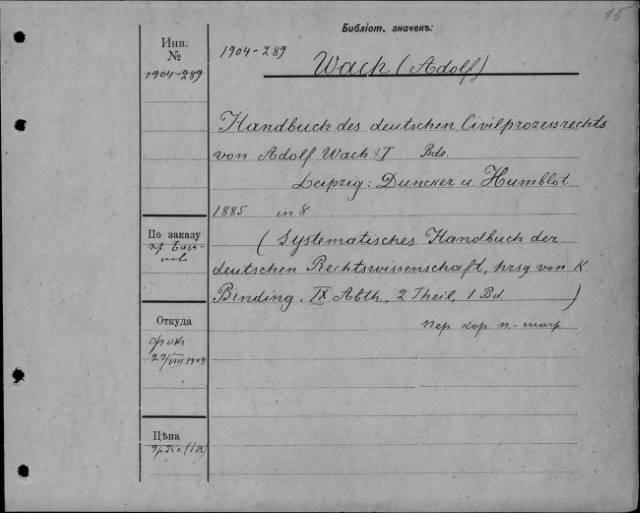 15
Библіот. значекъ:
Инв.
№
1904-289
1904-289
Wach (Adolf)
Handbuch des deutschen Civilprozessrechts
von Adolf Wach I Bde.
Leipzig: Duncker u Humblot
1885 in 8
По заказу
(Systematisches Handbuch der
deutschen Rechtswissenschaft, hrsg von K
Binding. IX Abth, 2 Theil, 1 Bd)
пер кор
Откуда
фок
29/VIII 1904
Цѣна